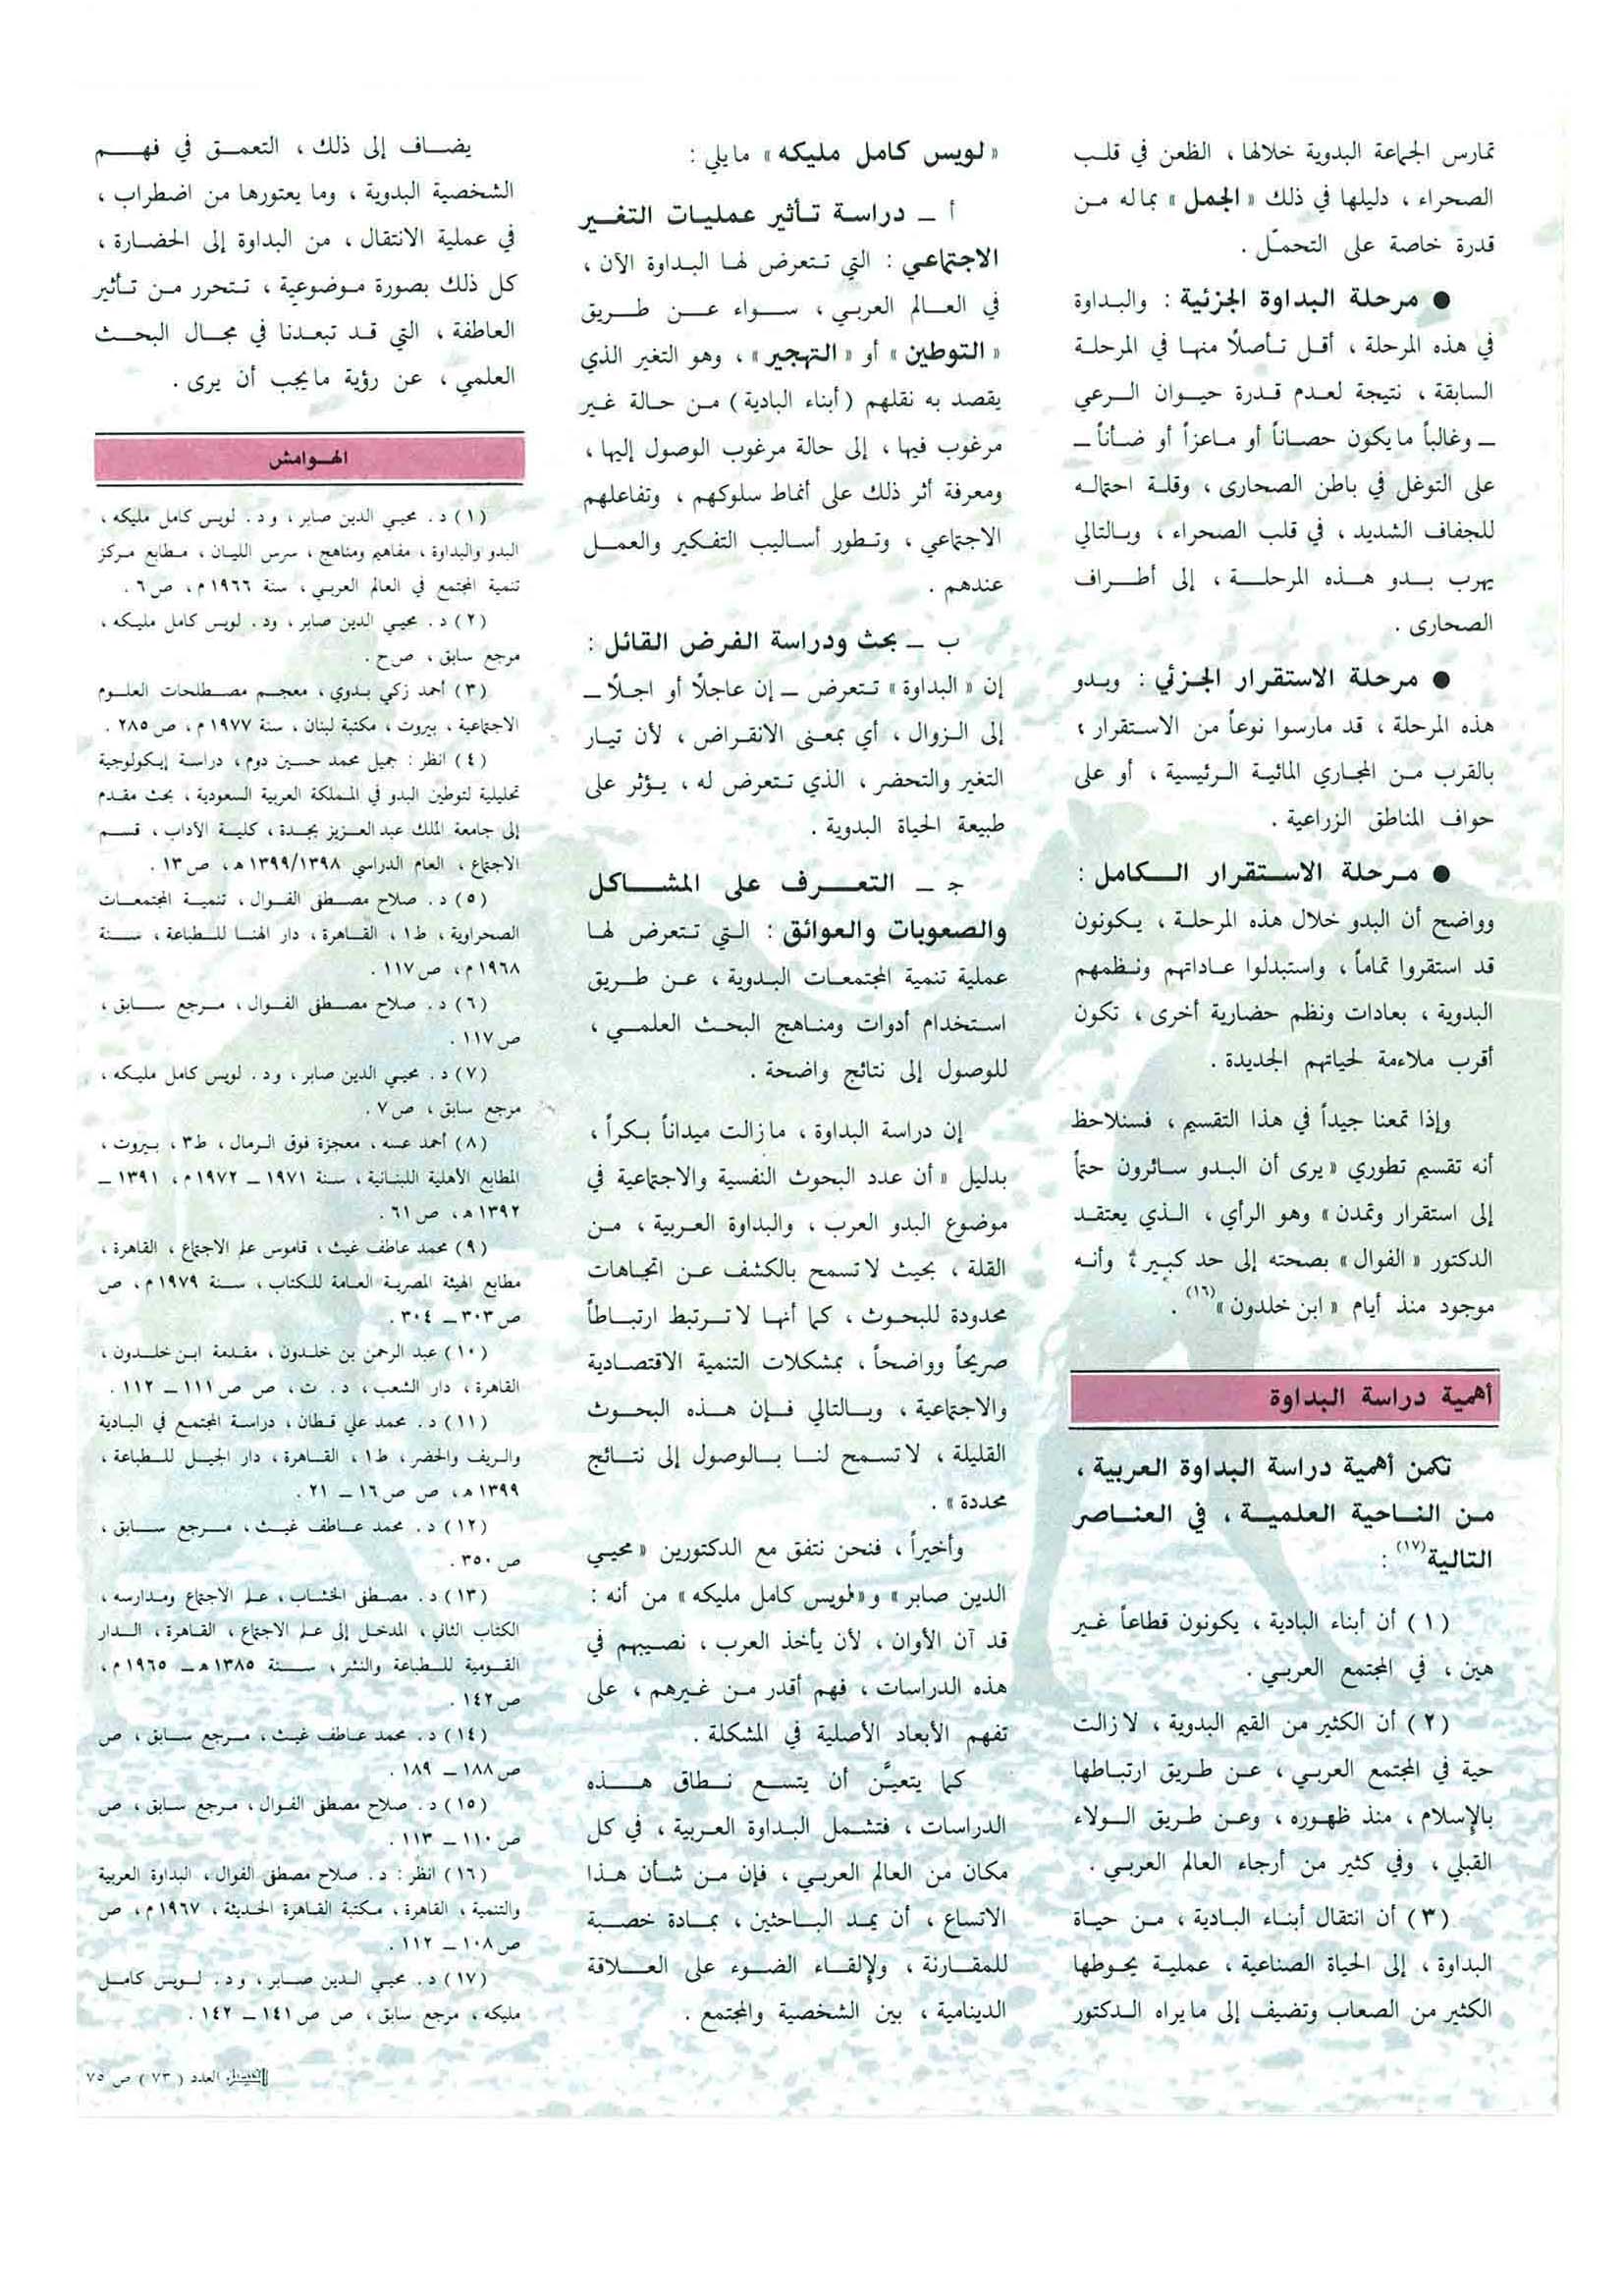 تمارس الجماعة البدوية خلالها ، الظعن في قلب
الصحراء ، دليلها في ذلك « الجمل » بماله من
قدرة خاصة على التحمّل .
● مرحلة البداوة الجزئية : والبداوة
في هذه المرحلة ، أقل تأصلاً منها في المرحلة
السابقة ، نتيجة لعدم قدرة حيوان الرعي
ــ وغالباً مايكون حصاناً أو ماعزاً أو ضأناً ــ
على التوغل في باطن الصحارى ، وقلة احتماله
للجفاف الشديد ، في قلب الصحراء ، وبالتالي
يهرب بدو هذه المرحلة ، إلى أطراف
الصحارى .
● مرحلة الاستقرار الجزئي : وبدو
هذه المرحلة ، قد مارسوا نوعاً من الاستقرار ،
بالقرب من المجاري المائية الرئيسية ، أو على
حواف المناطق الزراعية .
● مرحلة الاستقرار الكامل :
وواضح أن البدو خلال هذه المرحلة ، يكونون
قد استقروا تماماً ، واستبدلوا عاداتهم ونظمهم
البدوية ، بعادات ونظم حضارية أخرى ، تكون
أقرب ملاءمة لحياتهم الجديدة .
وإذا تمعنا جيداً في هذا التقسيم ، فسنلاحظ
أنه تقسيم تطوري « يرى أن البدو سائرون حتماً
إلى استقرار وتمدن » وهو الرأي ، الذي يعتقد
الدكتور « الفوال » بصحته إلى حد كبير ، وأنه
موجود منذ أيام « ابن خلدون »(١٦) .
أهمية دراسة البداوة
تكمن أهمية دراسة البداوة العربية ،
من الناحية العلمية ، في العناصر
التالية(١٧) :
(١) أن أبناء البادية ، يكونون قطاعاً غير
هين ، في المجتمع العربي .
(٢) أن الكثير من القيم البدوية ، لازالت
حية في المجتمع العربي ، عن طريق ارتباطها
بالإسلام ، منذ ظهوره ، وعن طريق الولاء
القبلي ، وفي كثير من أرجاء العالم العربي .
(٣) أن انتقال أبناء البادية ، من حياة
البداوة ، إلى الحياة الصناعية ، عملية يحوطها
الكثير من الصعاب وتضيف إلى مايراه الدكتور
« لويس كامل مليكه » مايلي :
أ ــ دراسة تأثير عمليات التغير
الاجتماعي : التي تتعرض لها البداوة الآن ،
في العالم العربي ، سواء عن طريق
« التوطين » أو « التهجير » ، وهو التغير الذي
يقصد به نقلهم (أبناء البادية) من حالة غير
مرغوب فيها ، إلى حالة مرغوب الوصول إليها ،
ومعرفة أثر ذلك على أنماط سلوكهم ، وتفاعلهم
الاجتماعي ، وتطور أساليب التفكير والعمل
عندهم .
ب ــ بحث ودراسة الفرض القائل :
إن « البداوة » تتعرض ــ إن عاجلاً أو اجلاً ــ
إلى الزوال ، أي بمعنى الانقراض ، لأن تيار
التغير والتحضر ، الذي تتعرض له ، يؤثر على
طبيعة الحياة البدوية .
جـ ــ التعرف على المشاكل
والصعوبات والعوائق : التي تتعرض لها
عملية تنمية المجتمعات البدوية ، عن طريق
استخدام أدوات ومناهج البحث العلمي ،
للوصول إلى نتائج واضحة .
إن دراسة البداوة ، مازالت ميداناً بكراً ،
بدليل « أن عدد البحوث النفسية والاجتماعية في
موضوع البدو العرب ، والبداوة العربية ، من
القلة ، بحيث لاتسمح بالكشف عن اتجاهات
محدودة للبحوث ، كما أنها لاترتبط ارتباطاً
صريحاً وواضحاً ، بمشكلات التنمية الاقتصادية
والاجتماعية ، وبالتالي فإن هذه البحوث
القليلة ، لاتسمح لنا بالوصول إلى نتائج
محددة » .
وأخيراً ، فنحن نتفق مع الدكتورين « محيي
الدين صابر » و« لويس كامل مليكه » من أنه :
قد آن الأوان ، لأن يأخذ العرب ، نصيبهم في
هذه الدراسات ، فهم أقدر من غيرهم ، على
تفهم الأبعاد الأصلية في المشكلة .
كما يتعيَّن أن يتسع نطاق هذه
الدراسات ، فتشمل البداوة العربية ، في كل
مكان من العالم العربي ، فإن من شأن هذا
الاتساع ، أن يمد الباحثين ، بمادة خصبة
للمقارنة ، ولإلقاء الضوء على العلاقة
الدينامية ، بين الشخصية والمجتمع .
يضاف إلى ذلك ، التعمق في فهم
الشخصية البدوية ، وما يعتورها من اضطراب ،
في عملية الانتقال ، من البداوة إلى الحضارة ،
كل ذلك بصورة موضوعية ، تتحرر من تأثير
العاطفة ، التي قد تبعدنا في مجال البحث
العلمي ، عن رؤية مايجب أن يرى .
الهوامش
(١) د. محيي الدين صابر ، ود. لويس كامل مليكه ،
البدو والبداوة ، مفاهيم ومناهج ، سرس الليان ، مطابع مركز
تنمية المجتمع في العالم العربي ، سنة ١٩٦٦م ، ص٦ .
(٢) د. محيي الدين صابر ، ود. لويس كامل مليكه ،
مرجع سابق ، صح .
(٣) أحمد زكي بدوي ، معجم مصطلحات العلوم
الاجتماعية ، بيروت ، مكتبة لبنان ، سنة ١٩٧٧م ، ص٢٨٥ .
(٤) انظر : جميل محمد حسين دوم ، دراسة إيكولوجية
تحليلية لتوطين البدو في المملكة العربية السعودية ، بحث مقدم
إلى جامعة الملك عبد العزيز بجدة ، كلية الآداب ، قسم
الاجتماع ، العام الدراسي ١٣٩٩/١٣٩٨هـ ، ص١٣ .
(٥) د. صلاح مصطفى الفوال ، تنمية المجتمعات
الصحراوية ، ط١ ، القاهرة ، دار الهنا للطباعة ، سنة
١٩٦٨م ، ص١١٧ .
(٦) د. صلاح مصطفى الفوال ، مرجع سابق ،
ص١١٧ .
(٧) د. محيي الدين صابر ، ود. لويس كامل مليكه ،
مرجع سابق ، ص٧ .
(٨) أحمد عسه ، معجزة فوق الرمال ، ط٣ ، بيروت ،
المطابع الأهلية اللبنانية ، سنة ١٩٧١ ــ ١٩٧٢م ، ١٣٩١ ــ
١٣٩٢هـ ، ص٦١ .
(٩) محمد عاطف غيث ، قاموس علم الاجتماع ، القاهرة ،
مطابع الهيئة المصرية العامة للكتاب ، سنة ١٩٧٩م ، ص
ص٣٠٣ ــ ٣٠٤ .
(١٠) عبد الرحمن بن خلدون ، مقدمة ابن خلدون ،
القاهرة ، دار الشعب ، د. ت ، ص ص١١١ ــ ١١٢ .
(١١) د. محمد علي قطان ، دراسة المجتمع في البادية
والريف والحضر ، ط١ ، القاهرة ، دار الجيل للطباعة ،
١٣٩٩هـ ، ص ص١٦ ــ ٢١ .
(١٢) د. محمد عاطف غيث ، مرجع سابق ،
ص٣٥٠ .
(١٣) د. مصطفى الخشاب ، علم الاجتماع ومدارسه ،
الكتاب الثاني ، المدخل إلى علم الاجتماع ، القاهرة ، الدار
القومية للطباعة والنشر ، سنة ١٣٨٥هـ ــ ١٩٦٥م ،
ص١٤٢ .
(١٤) د. محمد عاطف غيث ، مرجع سابق ، ص
ص١٨٨ ــ ١٨٩ .
(١٥) د. صلاح مصطفى الفوال ، مرجع سابق ، ص
ص١١٠ ــ ١١٣ .
(١٦) انظر : د. صلاح مصطفى الفوال ، البداوة العربية
والتنمية ، القاهرة ، مكتبة القاهرة الحديثة ، ١٩٦٧م ، ص
ص١٠٨ ــ ١١٢ .
(١٧) د. محيي الدين صابر ، ود. لويس كامل
مليكه ، مرجع سابق ، ص ص١٤١ ــ ١٤٢ .
الفيصل العدد (٧٣) ص ٧٥